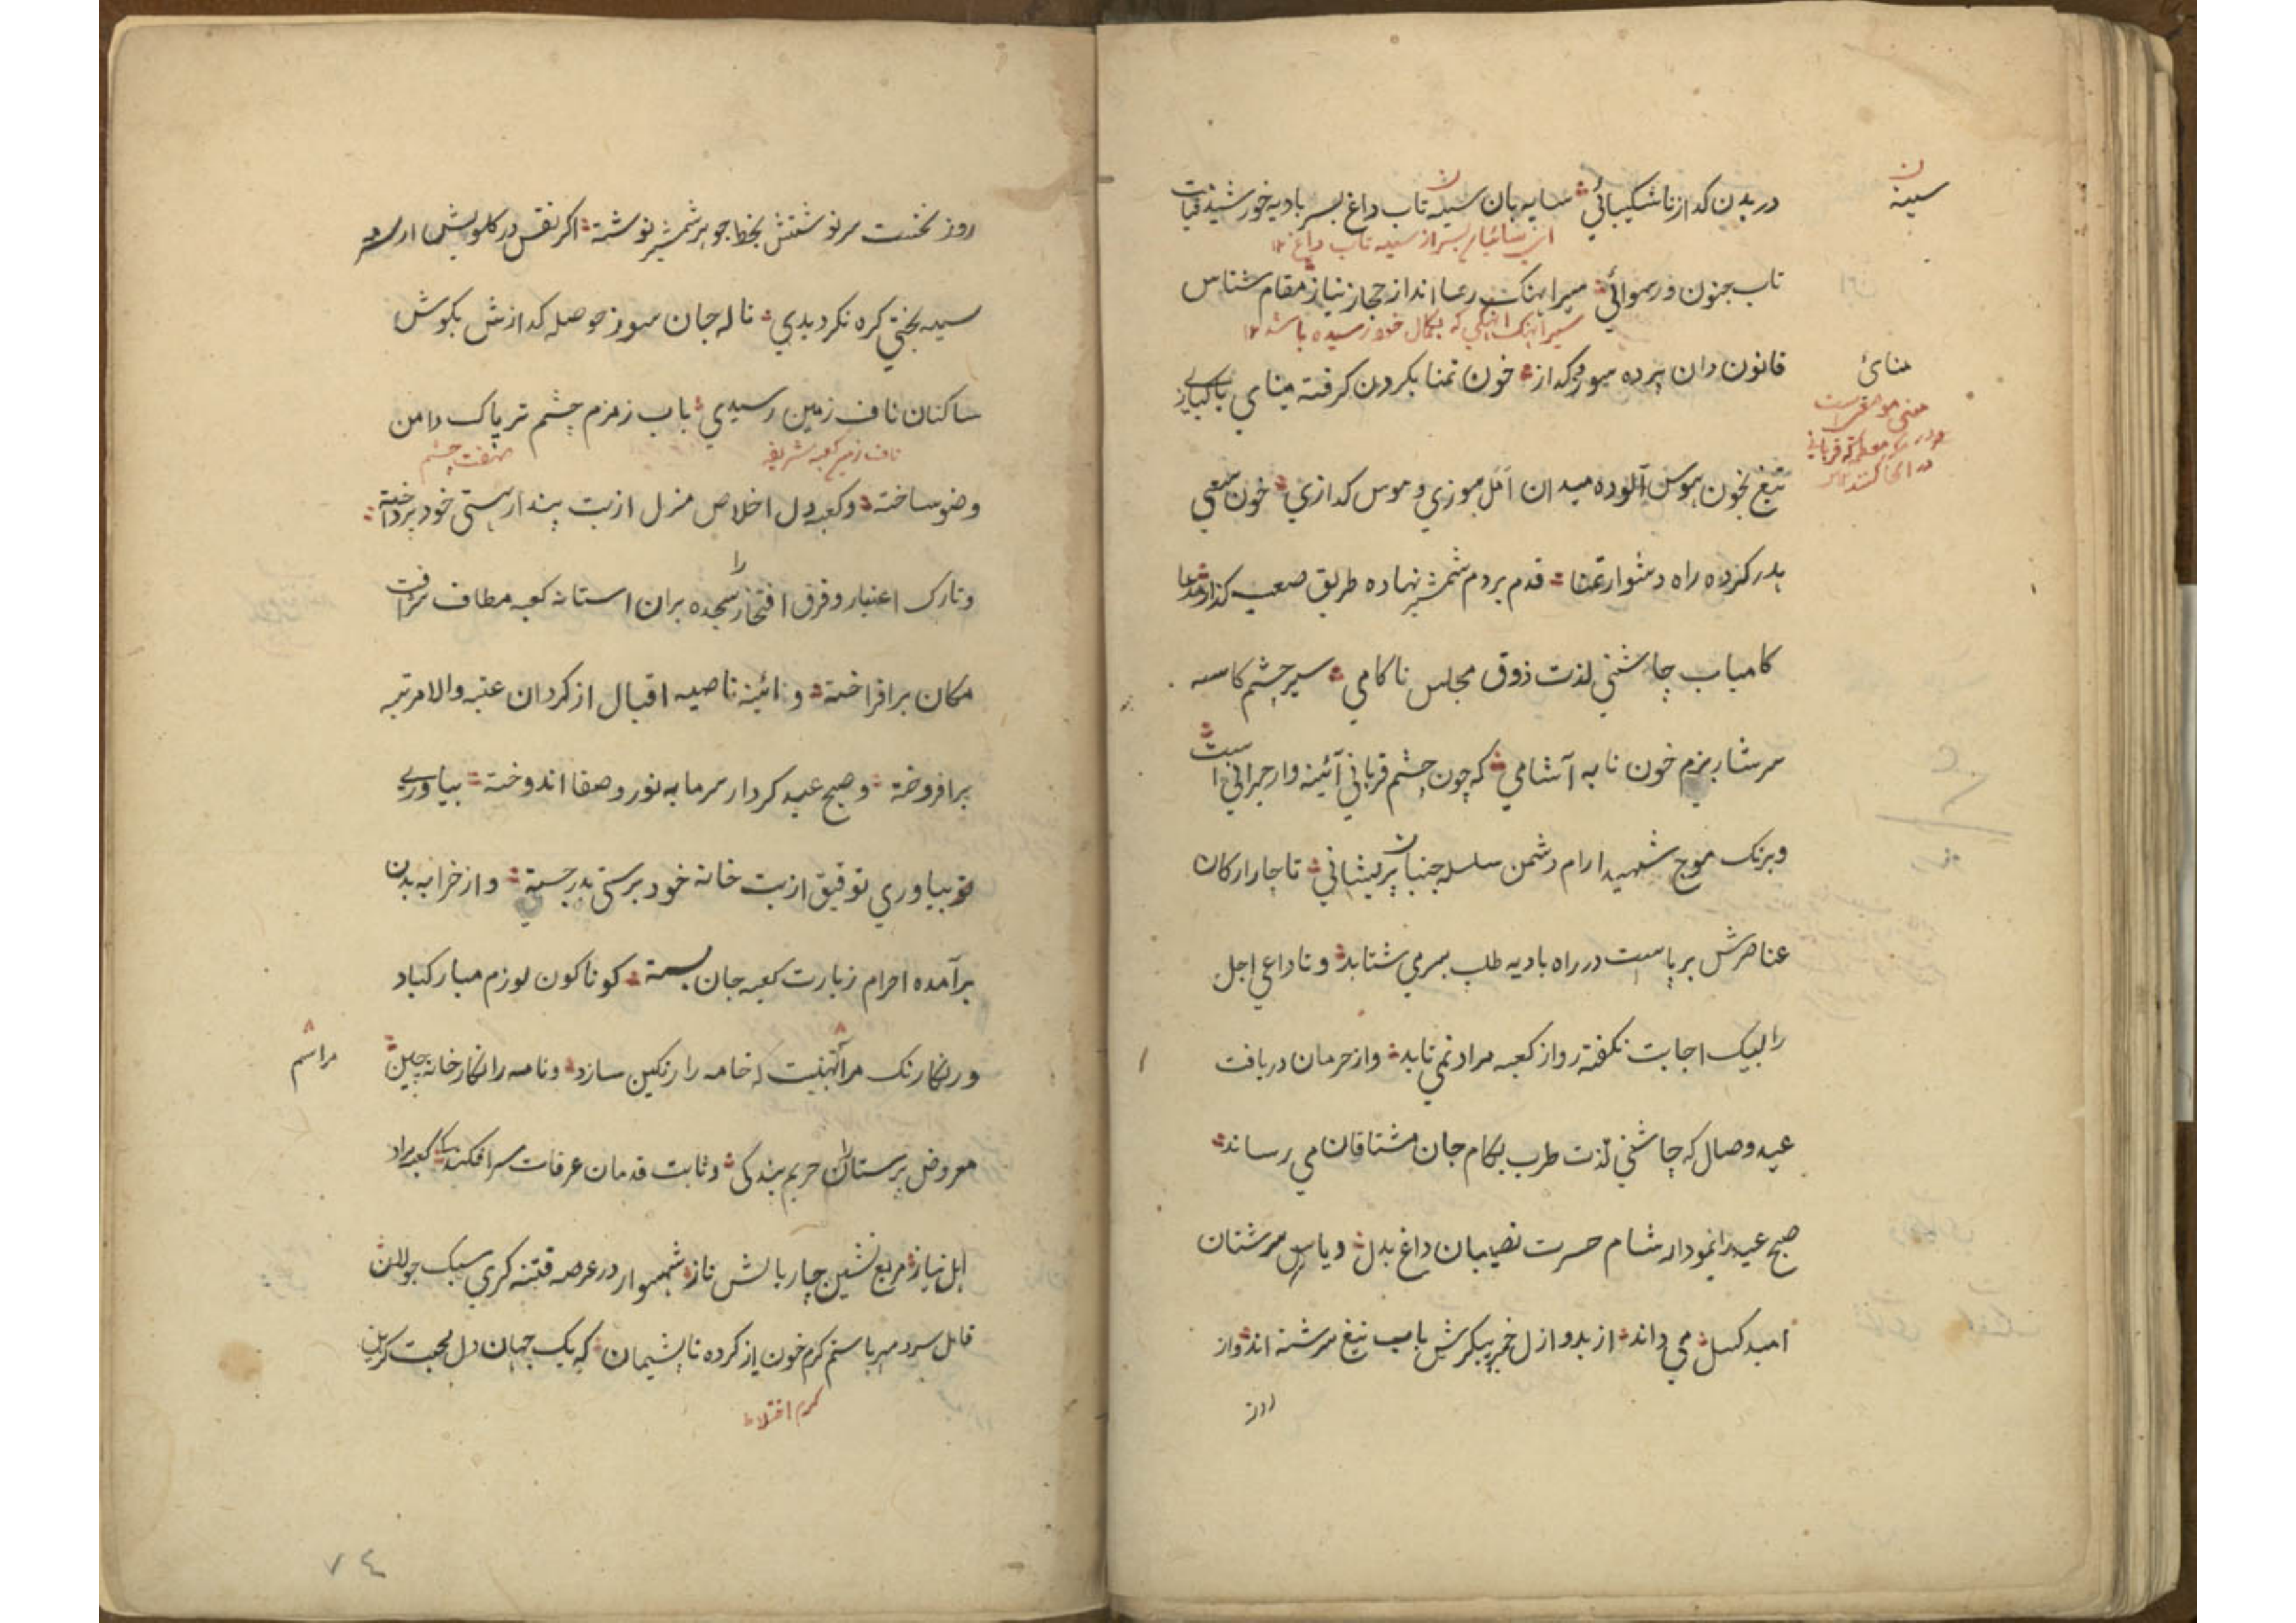 در بدن گداز ناشکیبائی سایه بان سینه تاب داغ بسر بادیه خورشید قیامت
سینه
این سائبان بسر از سینه تاب داغ
تاب جنون و رسوائی سیراهنگ رسا انداز حجاز نیاز مقام شناس
سیراهنگ اهنگی که بکمال خود رسیده باشد
قانون دان پرده سوز و گداز خون تمنا بکردن کرفته منای پاکبازی
منائ
منی موضعی است
در مکه معظمه که قربانی
در انجا کنند
تیغ بخون هوس آلوده میدان امل سوزی و هوس کدازی خون سعی
هدر کرده راه دشوار تمنا قدم بر دم شمشیر نهاده طریق صعب کذار مدعا
کامیاب چاشنی لذت ذوق مجلس ناکامی سیر چشم کاسه
سرشار بزم خون نابه آشامی که چون چشم قربانی آئینه وار حیرانی است
وبرنک موج شهید ارام دشمن سلسله جنبان پریشانی تا چار ارکان
عناصرش بر پاست در راه بادیه طلب بسر می شتابد و تا داعی اجل
را لبیک اجابت نکفته رو از کعبه مراد نمی تابد و از حرمان دریافت
عید وصال که چاشنی لذت طرب بکام جان مشتاقان می رساند
صبح عید را نمودار شام حسرت نصیبان داغ بدل و یاس سرشتان
امید کسل می داند از بدو ازل خمیر پیکرش باب تیغ سرشته اند و از
روز
روز نخست سرنوشتش بخط جوهر شمشیر نوشته اکر نفس در کلویش از
سیه بختی کره نکردیدی ناله جان سوز حوصله کدازش بکوش
ساکنان ناف زمین رسیدی باب زمزم چشم تر پاک دامن
ناف زمین کعبه شریفه
صفت چشم
وضو ساخته و کعبه دل اخلاص منزل از بت پندار هستی خود پرداخته
وتارک اعتبار و فرق افتخار را بسجده بران استانه کعبه مطاف شرافت
مکان برافراخته و ائینه ناصیه اقبال از کرد ان عتبه والا مرتبه
برافروخته و صبح عید کردار سرمایه نور و صفا اندوخته بیاوری
بیاوری توفیق از بت خانه خود پرستی بدر جسته و از خرابه بدن
برآمده احرام زیارت کعبه جان بسته کوناکون لوازم مبارکباد
ورنکارنک مراتب تهنیت که خامه را رنکین سازد و نامه را نکارخانه چین
مراسم
معروض پرستاران حریم بندکی و ثابت قدمان عرفات سرافکندکی کعبه مراد
اهل نیاز مربع نشین چار بالش ناز شهسوار در عرصه فتنه کری سبک جولان
قاتل سرد مهر باستم کرم خون از کرده ناپشیمان که یک جهان دل محبت کزین
کرم اختلاط
۷۴